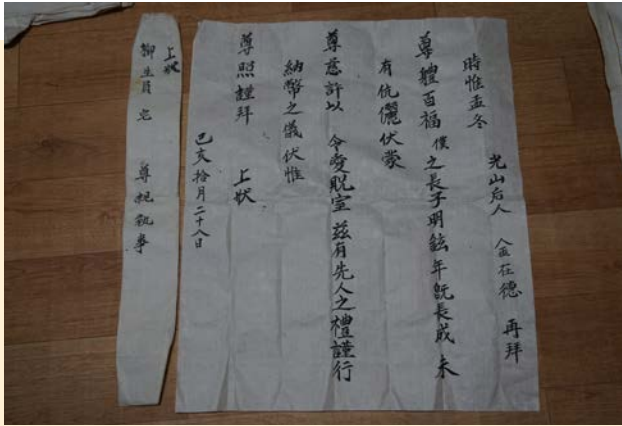 光山后人 金在德 再拜
時惟孟冬
尊體百福 僕之長子明鉉年旣長成 未
有伉儷伏蒙
尊慈許以 令愛貺室 玆有先人之禮謹行
納幣之儀伏惟
尊照謹拜 上狀
己亥拾月二十八日
上狀
柳生員 宅 尊親執事